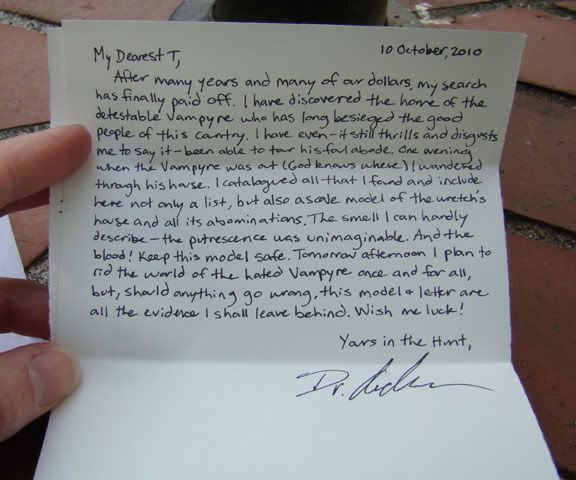 My Dearest T,
10 October, 2010
After many years and many of our dollars, my search
has finally paid off. I have discovered the home of the
detestable Vampyre who has long besieged the good
people of this country. I have even-it still thrills and disgusts
me to say it-been able to tour his foul abode. One evening
when the Vampyre was at (God knows where) I wandered
through his house. I catalogued all that I found and include
here not only a list, but also a scale model of the wretch's
house and all its abominations. The smell I can hardly
describe - the putrescence was unimaginable. And the
blood! Keep this model safe. Tomorrow afternoon I plan to
rid the world of the hated Vampyre once and for all,
but, should anything go wrong, this model & letter are
all the evidence I shall leave behind. Wish me luck!
Yours in the Hunt,
Dr.